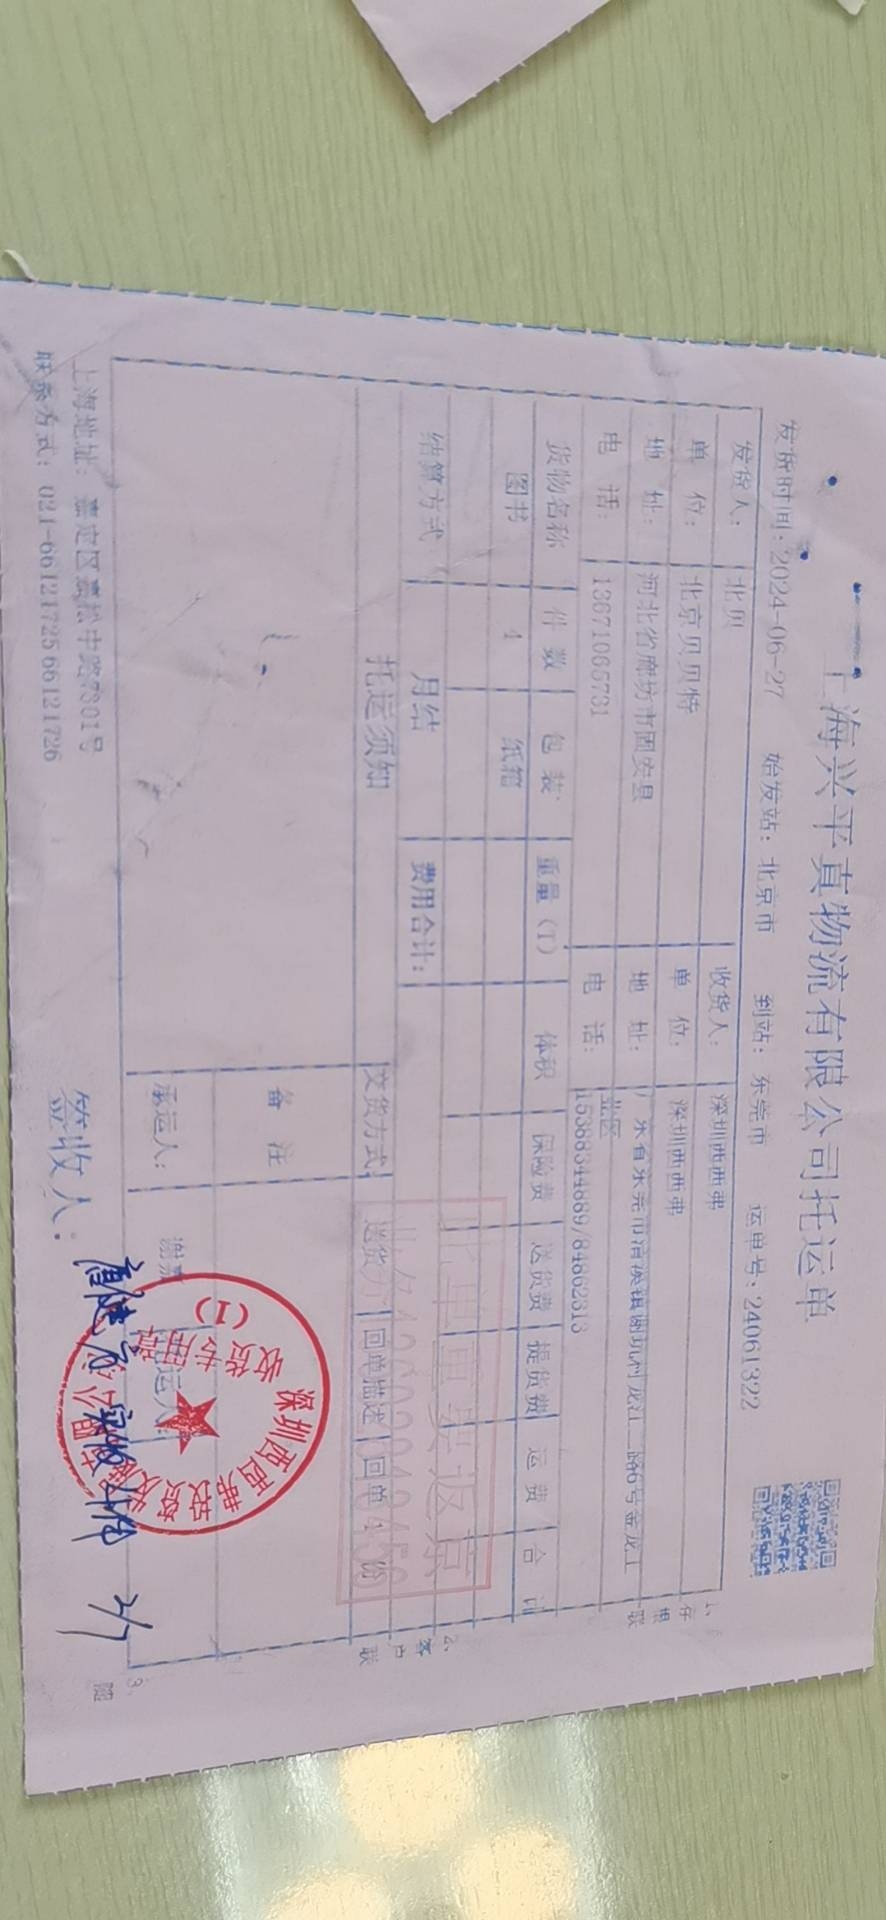 上海兴平真物流有限公司托运单
发货时间：2024-06-27 始发站：北京市 到站：东莞市 运单号：24061322
发货人： 北贝 收货人： 深圳西西弗
单 位： 北京贝贝特 单 位： 深圳西西弗
地 址： 河北省廊坊市固安县 地 址： 广东省东莞市清溪镇谢坑村龙江二路6号金龙工业区
电 话： 13671065731 电 话： 15388344889/84862313
货物名称 件 数 包 装 重量（T） 体积 保险费 送货费 提货费 运 费 合 计
图书 4 纸箱
结算方式 月结 费用合计：
此单重要返京
托运须知 交货方式： 送货 回单描述 回单 1 份
备 注
承运人： 谢
1、存根联
2、客户联
3、随
深圳西西弗投资发展有限公司
收货专用章
（1）
签收人： 实收4件 2/7
上海地址：嘉定区嘉松中路7301号
联系方式：021-66121725 66121726